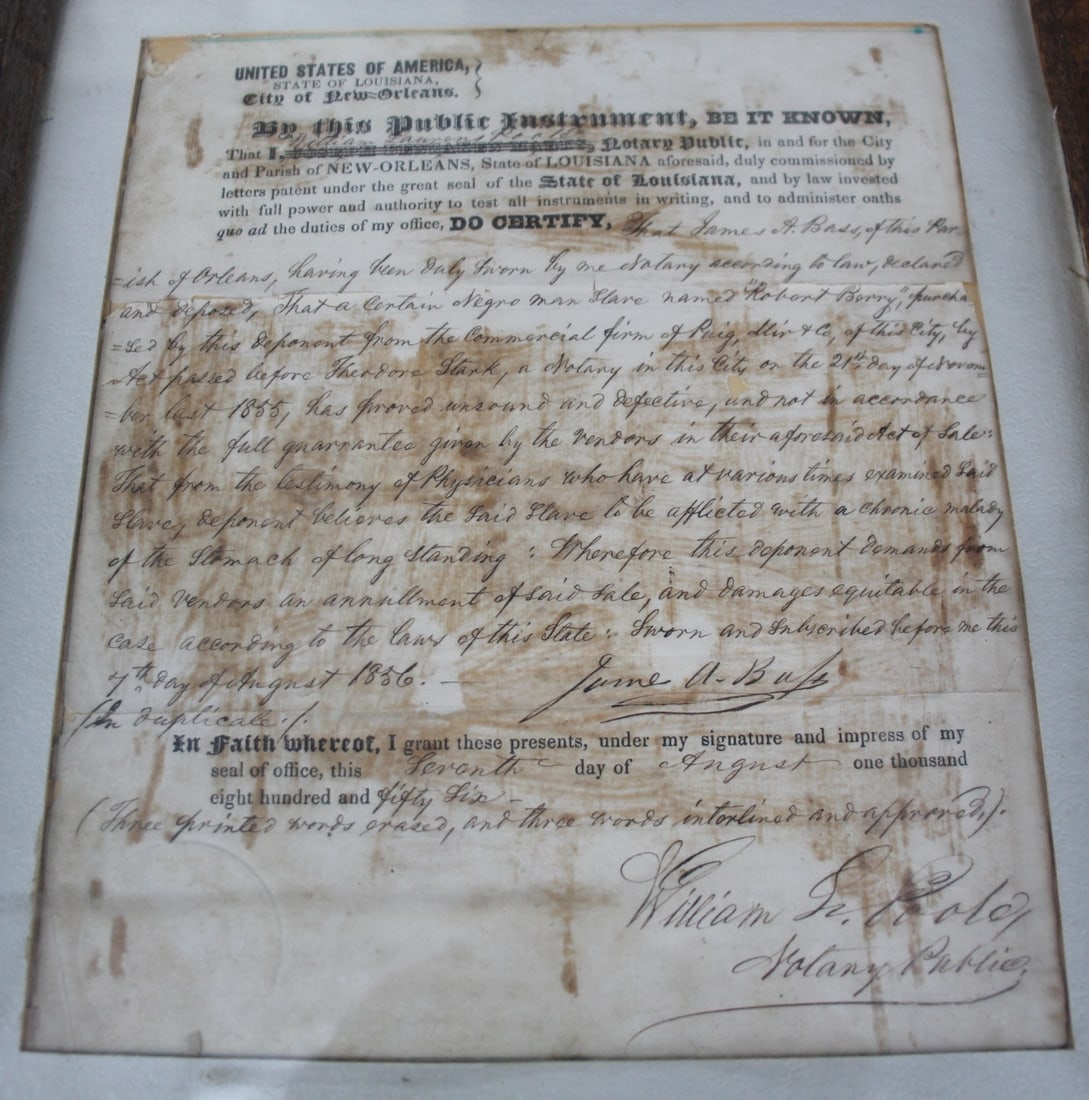 UNITED STATES OF AMERICA,
STATE OF LOUISIANA,
City of New-Orleans.
By this Public Instrument, BE IT KNOWN,
That I, William Laurens Poole Notary Public, in and for the City
and Parish of NEW-ORLEANS, State of LOUISIANA aforesaid, duly commissioned by
letters patent under the great seal of the State of Louisiana, and by law invested
with full power and authority to test all instruments in writing, and to administer oaths
quo ad the duties of my office, DO CERTIFY, That James A. Bass, of this Par
=ish of Orleans, having been duly sworn by me Notary according to law, declared
and deposed, That a certain Negro man slave named "Robert Berry", purcha-
=sed by this deponent from the Commercial firm of Puig, Mir & Co, of this City, by
Act passed before Theodore Stark, a Notary in this City on the 21st day of Novem=
=ber last 1855, has proved unsound and defective, and not in accordance
with the full guarrantee given by the vendors in their aforesaid Act of Sale:
That from the testimony of Physicians who have at various times examined said
Slave, deponent believes the said Slave to be afflicted with a chronic malady
of the Stomach of long standing : Wherefore this deponent demands from
said vendors an annullment of said sale, and damages equitable in the
case according to the laws of this State : Sworn and Subscribed before me this
7th day of August 1856. —
James A. Bass
/In duplicate./.
In Faith whereof, I grant these presents, under my signature and impress of my
seal of office, this Seventh day of August one thousand
eight hundred and fifty six -
(Three printed words erased, and three words interlined and approved,).
William L. Poole,
Notary Public.